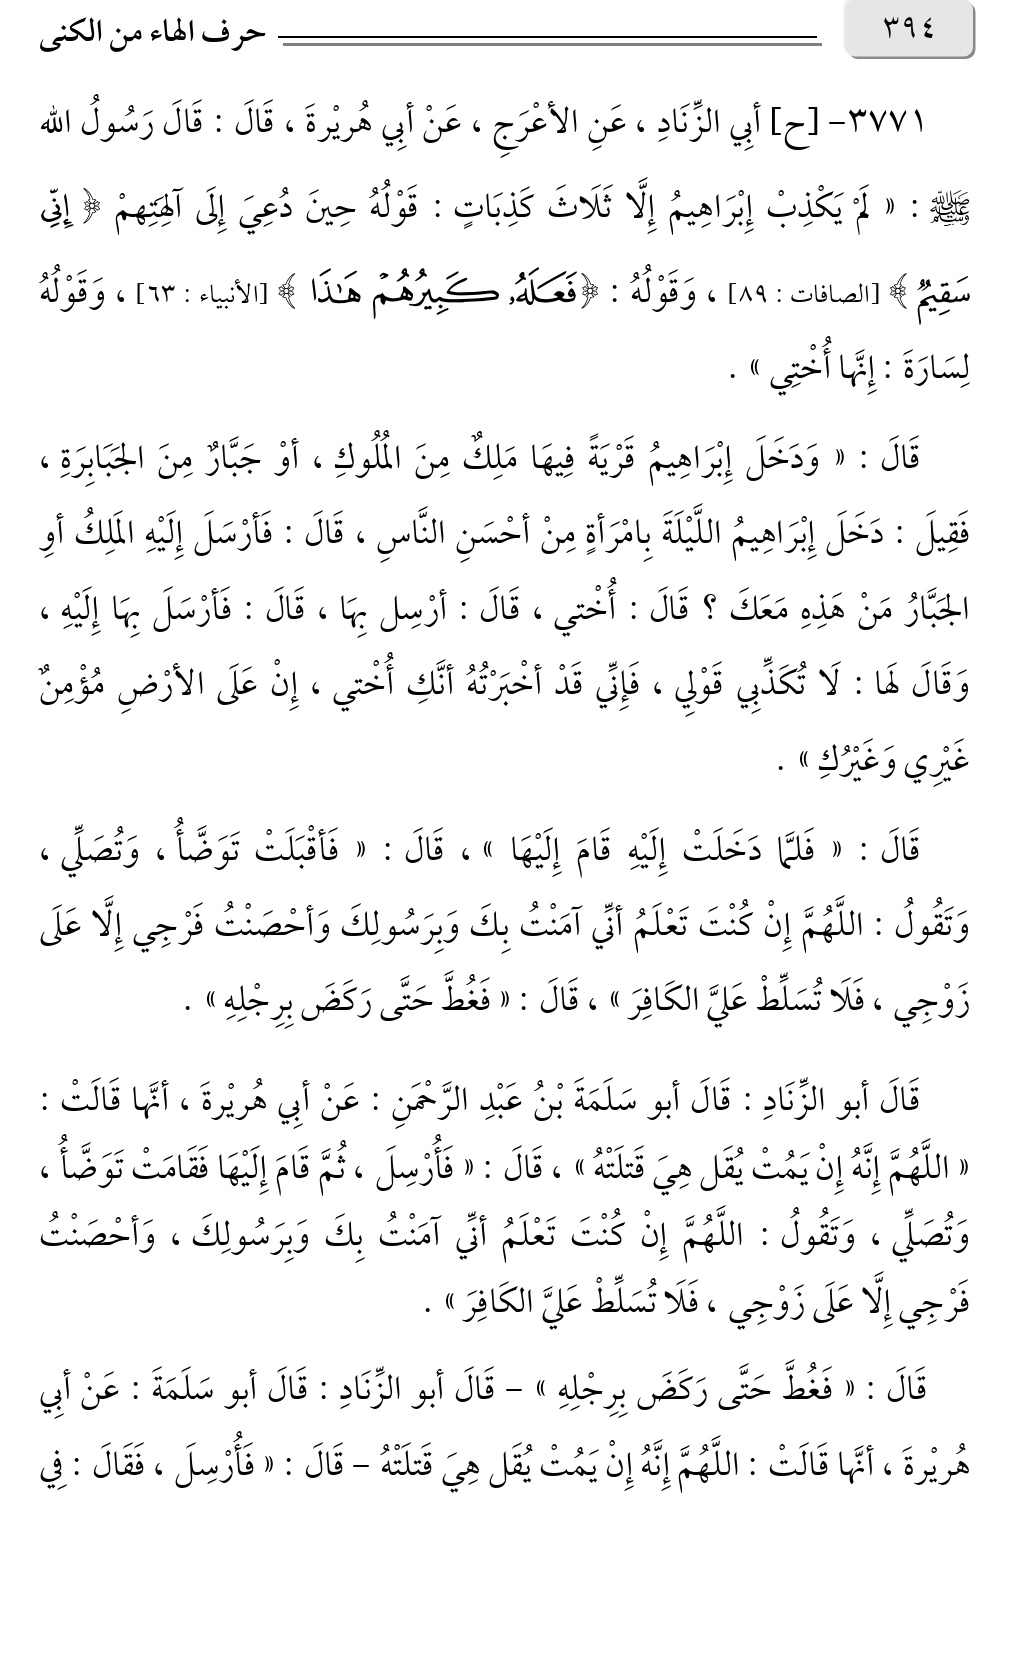 حرف الهاء من الكنى ٣٩٤
٣٧٧١- [ح] أبِي الزِّنَادِ ، عَنِ الأعْرَجِ ، عَنْ أبِي هُريْرةَ ، قَالَ : قَالَ رَسُولُ الله
ﷺ : « لَمْ يَكْذِبْ إبْرَاهِيمُ إلَّا ثَلَاثَ كَذِبَاتٍ : قَوْلُهُ حِينَ دُعِيَ إلَى آلِهَتِهمْ ﴿ إِنِّي
سَقِيمٌ ﴾ [الصافات : ٨٩] ، وَقَوْلُهُ : ﴿فَعَلَهُۥ كَبِيرُهُمْ هَٰذَا ﴾ [الأنبياء : ٦٣] ، وَقَوْلُهُ
لِسَارَةَ : إنَّها أُخْتِي » .
قَالَ : « وَدَخَلَ إبْرَاهِيمُ قَرْيَةً فِيهَا مَلِكٌ مِنَ الْمُلُوكِ ، أوْ جَبَّارٌ مِنَ الجَبَابِرَةِ ،
فَقِيلَ : دَخَلَ إبْرَاهِيمُ اللَّيْلَةَ بِامْرَأةٍ مِنْ أحْسَنِ النَّاسِ ، قَالَ : فَأرْسَلَ إلَيْهِ المَلِكُ أوِ
الجَبَّارُ مَنْ هَذِهِ مَعَكَ ؟ قَالَ : أُخْتي ، قَالَ : أرْسِل بِهَا ، قَالَ : فَأرْسَلَ بِهَا إلَيْهِ ،
وَقَالَ لَها : لَا تُكَذِّبِي قَوْلِي ، فَإنِّي قَدْ أخْبَرْتُهُ أنَّكِ أُخْتي ، إنْ عَلَى الأرْضِ مُؤْمِنٌ
غَيْرِي وَغَيْرُكِ » .
قَالَ : « فَلمَّا دَخَلَتْ إلَيْهِ قَامَ إلَيْهَا » ، قَالَ : « فَأقْبَلَتْ تَوَضَّأُ ، وَتُصَلِّي ،
وَتَقُولُ : اللَّهُمَّ إنْ كُنْتَ تَعْلَمُ أنِّي آمَنْتُ بِكَ وَبِرَسُولِكَ وَأحْصَنْتُ فَرْجِي إلَّا عَلَى
زَوْجِي ، فَلَا تُسَلِّطْ عَليَّ الكَافِرَ » ، قَالَ : « فَغُطَّ حَتَّى رَكَضَ بِرِجْلِهِ » .
قَالَ أبو الزِّنَادِ : قَالَ أبو سَلَمَةَ بْنُ عَبْدِ الرَّحْمَنِ : عَنْ أبِي هُريْرةَ ، أنَّها قَالَتْ :
« اللَّهُمَّ إنَّهُ إنْ يَمُتْ يُقَل هِيَ قَتلَتْهُ » ، قَالَ : « فَأُرْسِلَ ، ثُمَّ قَامَ إلَيْهَا فَقَامَتْ تَوَضَّأُ ،
وَتُصَلِّي ، وَتَقُولُ : اللَّهُمَّ إنْ كُنْتَ تَعْلَمُ أنِّي آمَنْتُ بِكَ وَبِرَسُولِكَ ، وَأحْصَنْتُ
فَرْجِي إلَّا عَلَى زَوْجِي ، فَلَا تُسَلِّطْ عَليَّ الكَافِرَ » .
قَالَ : « فَغُطَّ حَتَّى رَكَضَ بِرِجْلِهِ » – قَالَ أبو الزِّنَادِ : قَالَ أبو سَلَمَةَ : عَنْ أبِي
هُريْرةَ ، أنَّها قَالَتْ : اللَّهُمَّ إنَّهُ إنْ يَمُتْ يُقَل هِيَ قَتلَتْهُ – قَالَ : « فَأُرْسِلَ ، فَقَالَ : فِي